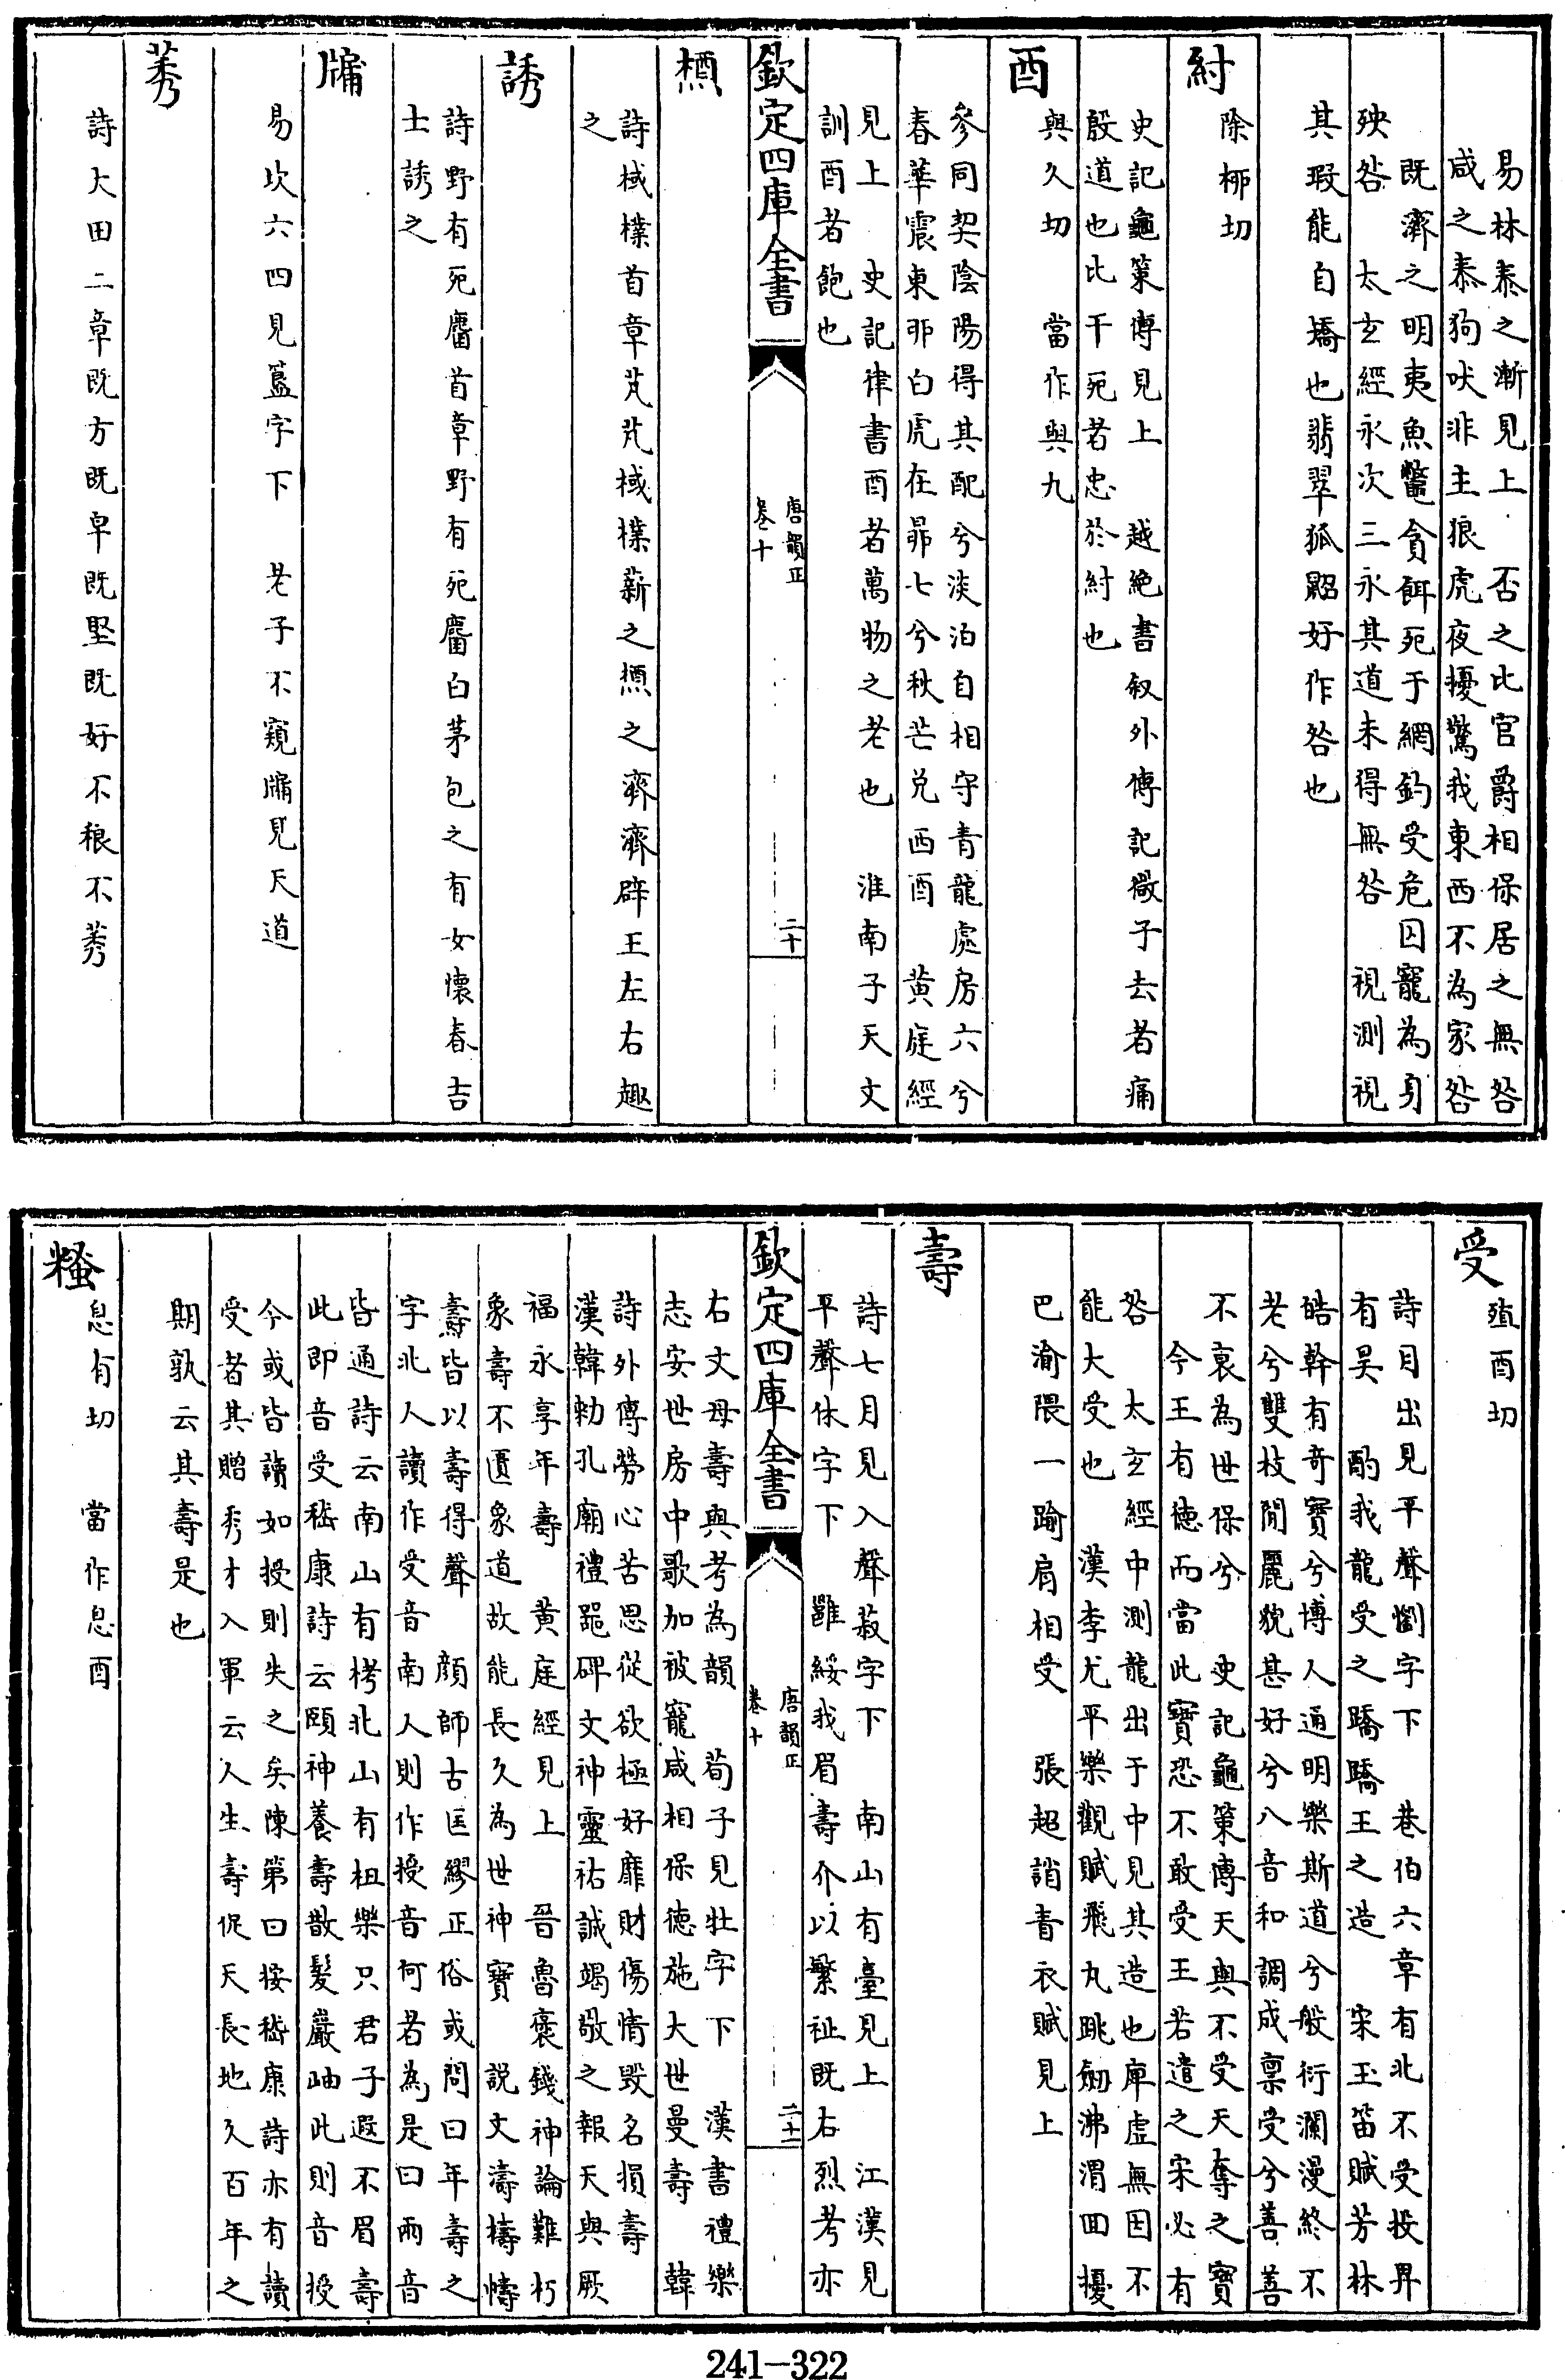 易林泰之漸見上　否之比官爵相保居之無咎
咸之泰狗吠非主狼虎夜擾驚我東西不為家咎
既濟之明夷魚鼈貪餌死于網釣受危囚寵為身
殃咎　太玄經永次三永其道未得無咎　視測視
其瑕能自矯也翡翠狐貂好作咎也
紂
除柳切
史記龜策傳見上　越絶書叙外傳記微子去者痛
殷道也比干死者忠於紂也
酉
與久切　當作與九
參同契陰陽得其配兮淡泊自相守青龍處房六兮
春華震東卯白虎在昴七兮秋芒兌西酉　黄庭經
見上　史記律書酉者萬物之老也　淮南子天文
訓酉者飽也
欽定四庫全書
唐韻正
卷十
二十
槱
詩棫樸首章芃芃棫樸薪之槱之濟濟辟王左右趣
之
誘
詩野有死麕首章野有死麕白茅包之有女懷春吉
士誘之
牖
易坎六四見簋字下　老子不窺牖見天道
莠
詩大田二章既方既皁既堅既好不稂不莠
受
殖酉切
詩月出見平聲懰字下　巷伯六章有北不受投畀
有昊　酌我龍受之蹻蹻王之造　宋玉笛賦芳林
皓幹有奇寶兮博人通明樂斯道兮般衍瀾漫終不
老兮雙枝閒麗貌甚好兮八音和調成禀受兮善善
不衰為世保兮　史記龜策傳天與不受天奪之寶
今王有徳而當此寶恐不敢受王若遣之宋必有
咎　太玄經中測龍出于中見其造也庳虚無因不
能大受也　漢李尤平樂觀賦飛丸跳劒沸渭回擾
巴渝隈一踰肩相受　張超誚青衣賦見上
壽
詩七月見入聲菽字下　南山有臺見上　江漢見
平聲休字下　雝綏我眉壽介以繁祉既右烈考亦
欽定四庫全書
唐韻正
卷十
二十一
右文母壽與考為韻　荀子見牡字下　漢書禮樂
志安世房中歌加被寵咸相保徳施大世曼壽　韓
詩外傳勞心苦思從欲極好靡財傷情毁名損壽
漢韓勅孔廟禮器碑文神靈祐誠竭敬之報天與厥
福永享年壽　黄庭經見上　晉魯褒錢神論難朽
象壽不匱象道故能長久為世神寶　説文濤檮幬
燾皆以壽得聲　顔師古匡繆正俗或問曰年壽之
字北人讀作受音南人則作授音何者為是曰兩音
皆通詩云南山有栲北山有杻樂只君子遐不眉壽
此即音受嵇康詩云頤神養壽散髮巖岫此則音授
今或皆讀如授則失之矣陳第曰按嵇康詩亦有讀
受者其贈秀才入軍云人生壽促天長地久百年之
期孰云其壽是也
糔
息有切　當作息酉
241-322